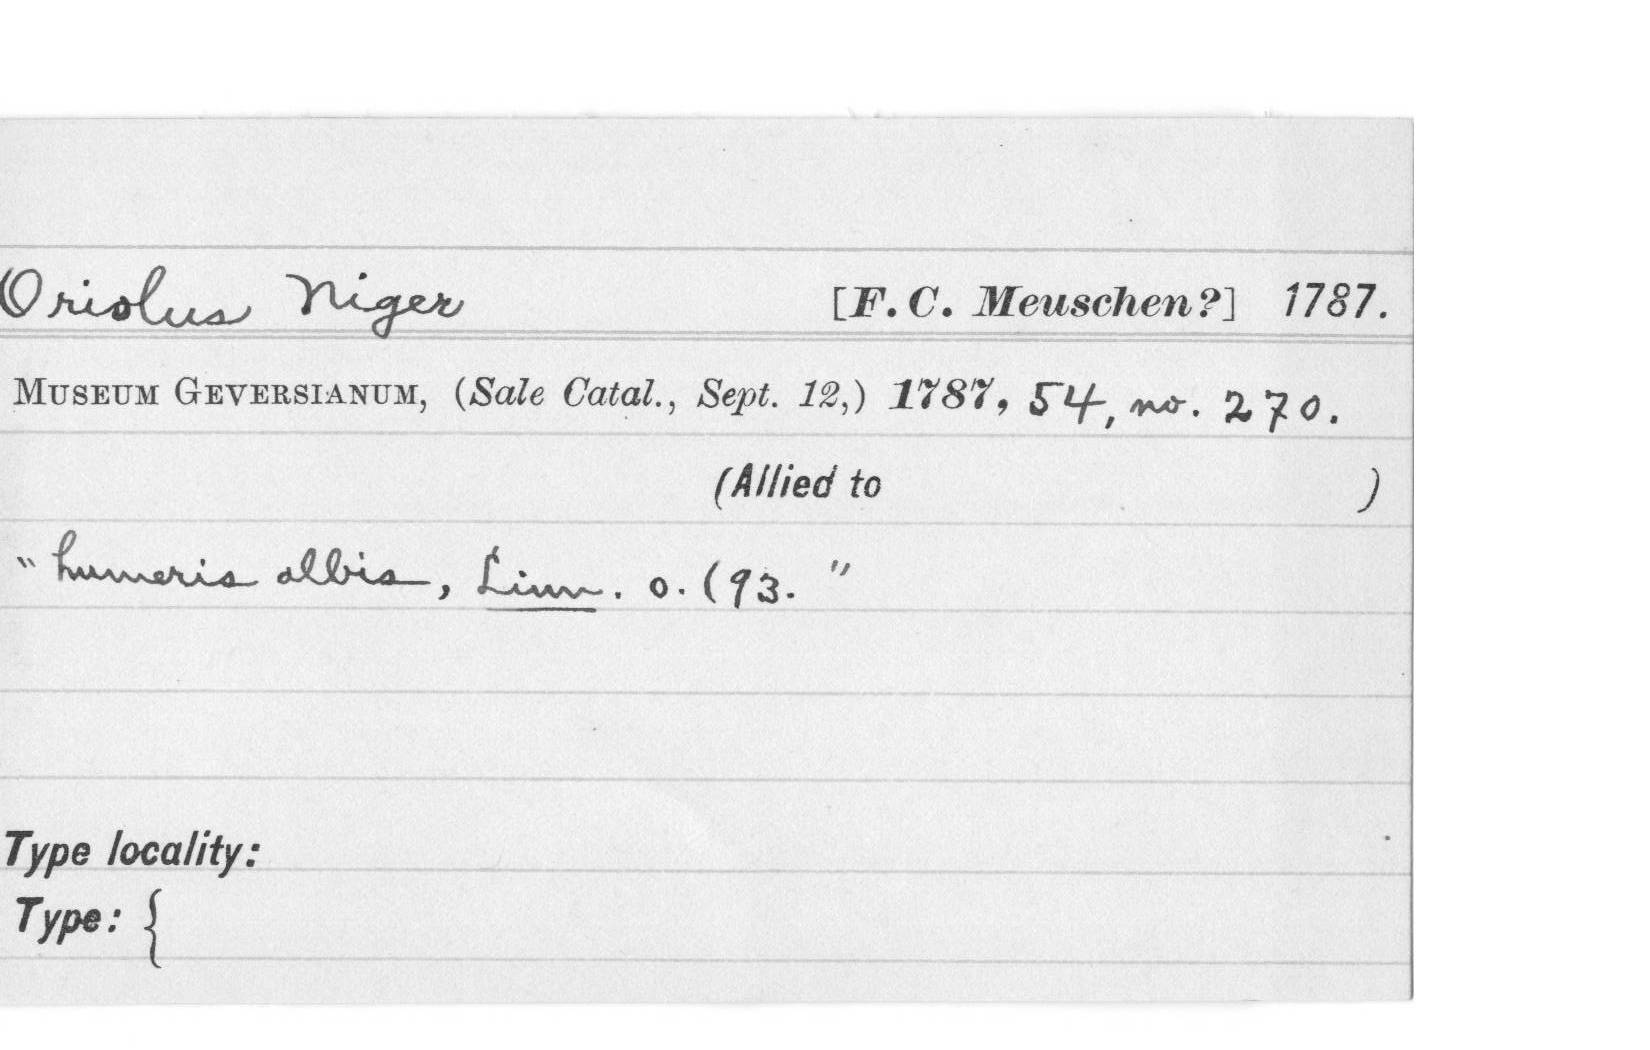 Oriolus Niger [F. C. Meuschen?] 1787.
MUSEUM GEVERSIANUM, (Sale Catal., Sept. 12,) 1787, 54, no. 270.
(Allied to )
" humeris albis, Linn. o. (93. "
Type locality:
Type: {